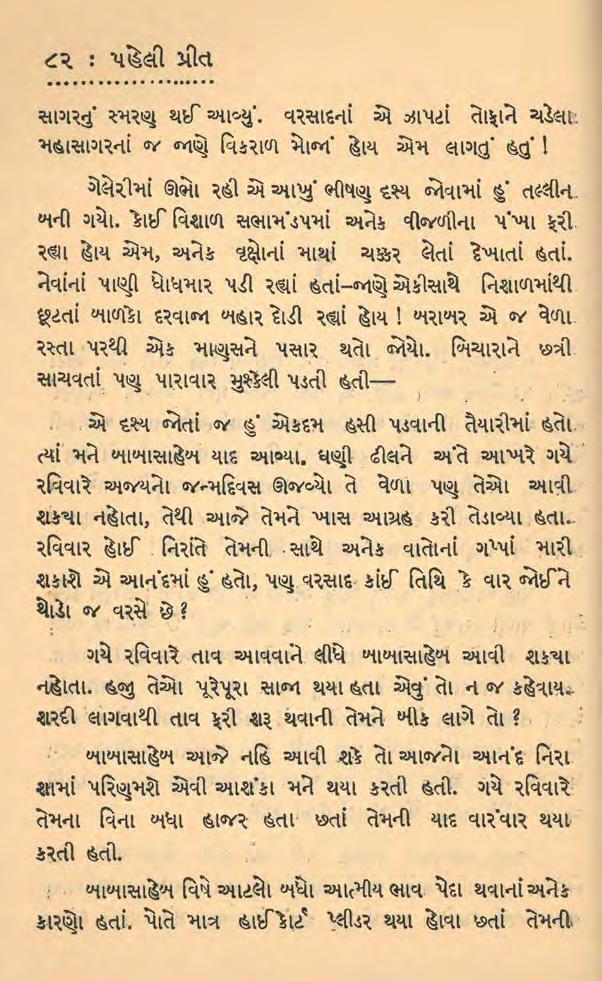 ૮૨ : પહેલી પ્રીત
સાગરનું સ્મરણ થઈ આવ્યું. વરસાદનાં એ ઝાપટાં તોફાને ચડેલા
મહાસાગરનાં જ જાણે વિકરાળ મોજાં હોય એમ લાગતું હતું !
ગેલેરીમાં ઊભો રહી એ આખું ભીષણ દૃશ્ય જોવામાં હું તલ્લીન
બની ગયો. કોઈ વિશાળ સભામંડપમાં અનેક વીજળીના પંખા ફરી
રહ્યા હોય એમ, અનેક વૃક્ષોનાં માથાં ચક્કર લેતાં દેખાતાં હતાં.
નેવાંનાં પાણી ધોધમાર પડી રહ્યાં હતાં–જાણે એકીસાથે નિશાળમાંથી
છૂટતાં બાળકો દરવાજા બહાર દોડી રહ્યાં હોય ! બરાબર એ જ વેળા
રસ્તા પરથી એક માણસને પસાર થતો જોયો. બિચારાને છત્રી
સાચવતાં પણ પારાવાર મુશ્કેલી પડતી હતી—
એ દૃશ્ય જોતાં જ હું એકદમ હસી પડવાની તૈયારીમાં હતો
ત્યાં મને બાબાસાહેબ યાદ આવ્યા. ઘણી ઢીલને અંતે આખરે ગયે
રવિવારે અજયનો જન્મદિવસ ઊજવ્યો તે વેળા પણ તેઓ આવી
શકયા નહોતા, તેથી આજે તેમને ખાસ આગ્રહ કરી તેડાવ્યા હતા.
રવિવાર હોઈ નિરાંતે તેમની સાથે અનેક વાતોનાં ગપ્પાં મારી
શકાશે એ આનંદમાં હું હતો, પણ વરસાદ કાંઈ તિથિ કે વાર જોઈને
થોડો જ વરસે છે ?
ગયે રવિવારે તાવ આવવાને લીધે બાબાસાહેબ આવી શકયા
નહોતા. હજુ તેઓ પૂરેપૂરા સાજા થયા હતા એવું તો ન જ કહેવાય.
શરદી લાગવાથી તાવ ફરી શરૂ થવાની તેમને બીક લાગે તો ?
બાબાસાહેબ આજે નહિ આવી શકે તો આજનો આનંદ નિરા
શામાં પરિણમશે એવી આશંકા મને થયા કરતી હતી. ગયે રવિવારે
તેમના વિના બધા હાજર હતા છતાં તેમની યાદ વારંવાર થયા
કરતી હતી.
બાબાસાહેબ વિષે આટલો બધો આત્મીય ભાવ પેદા થવાનાં અનેક
કારણો હતાં. પોતે માત્ર હાઈ કોર્ટ પ્લીડર થયા હોવા છતાં તેમની